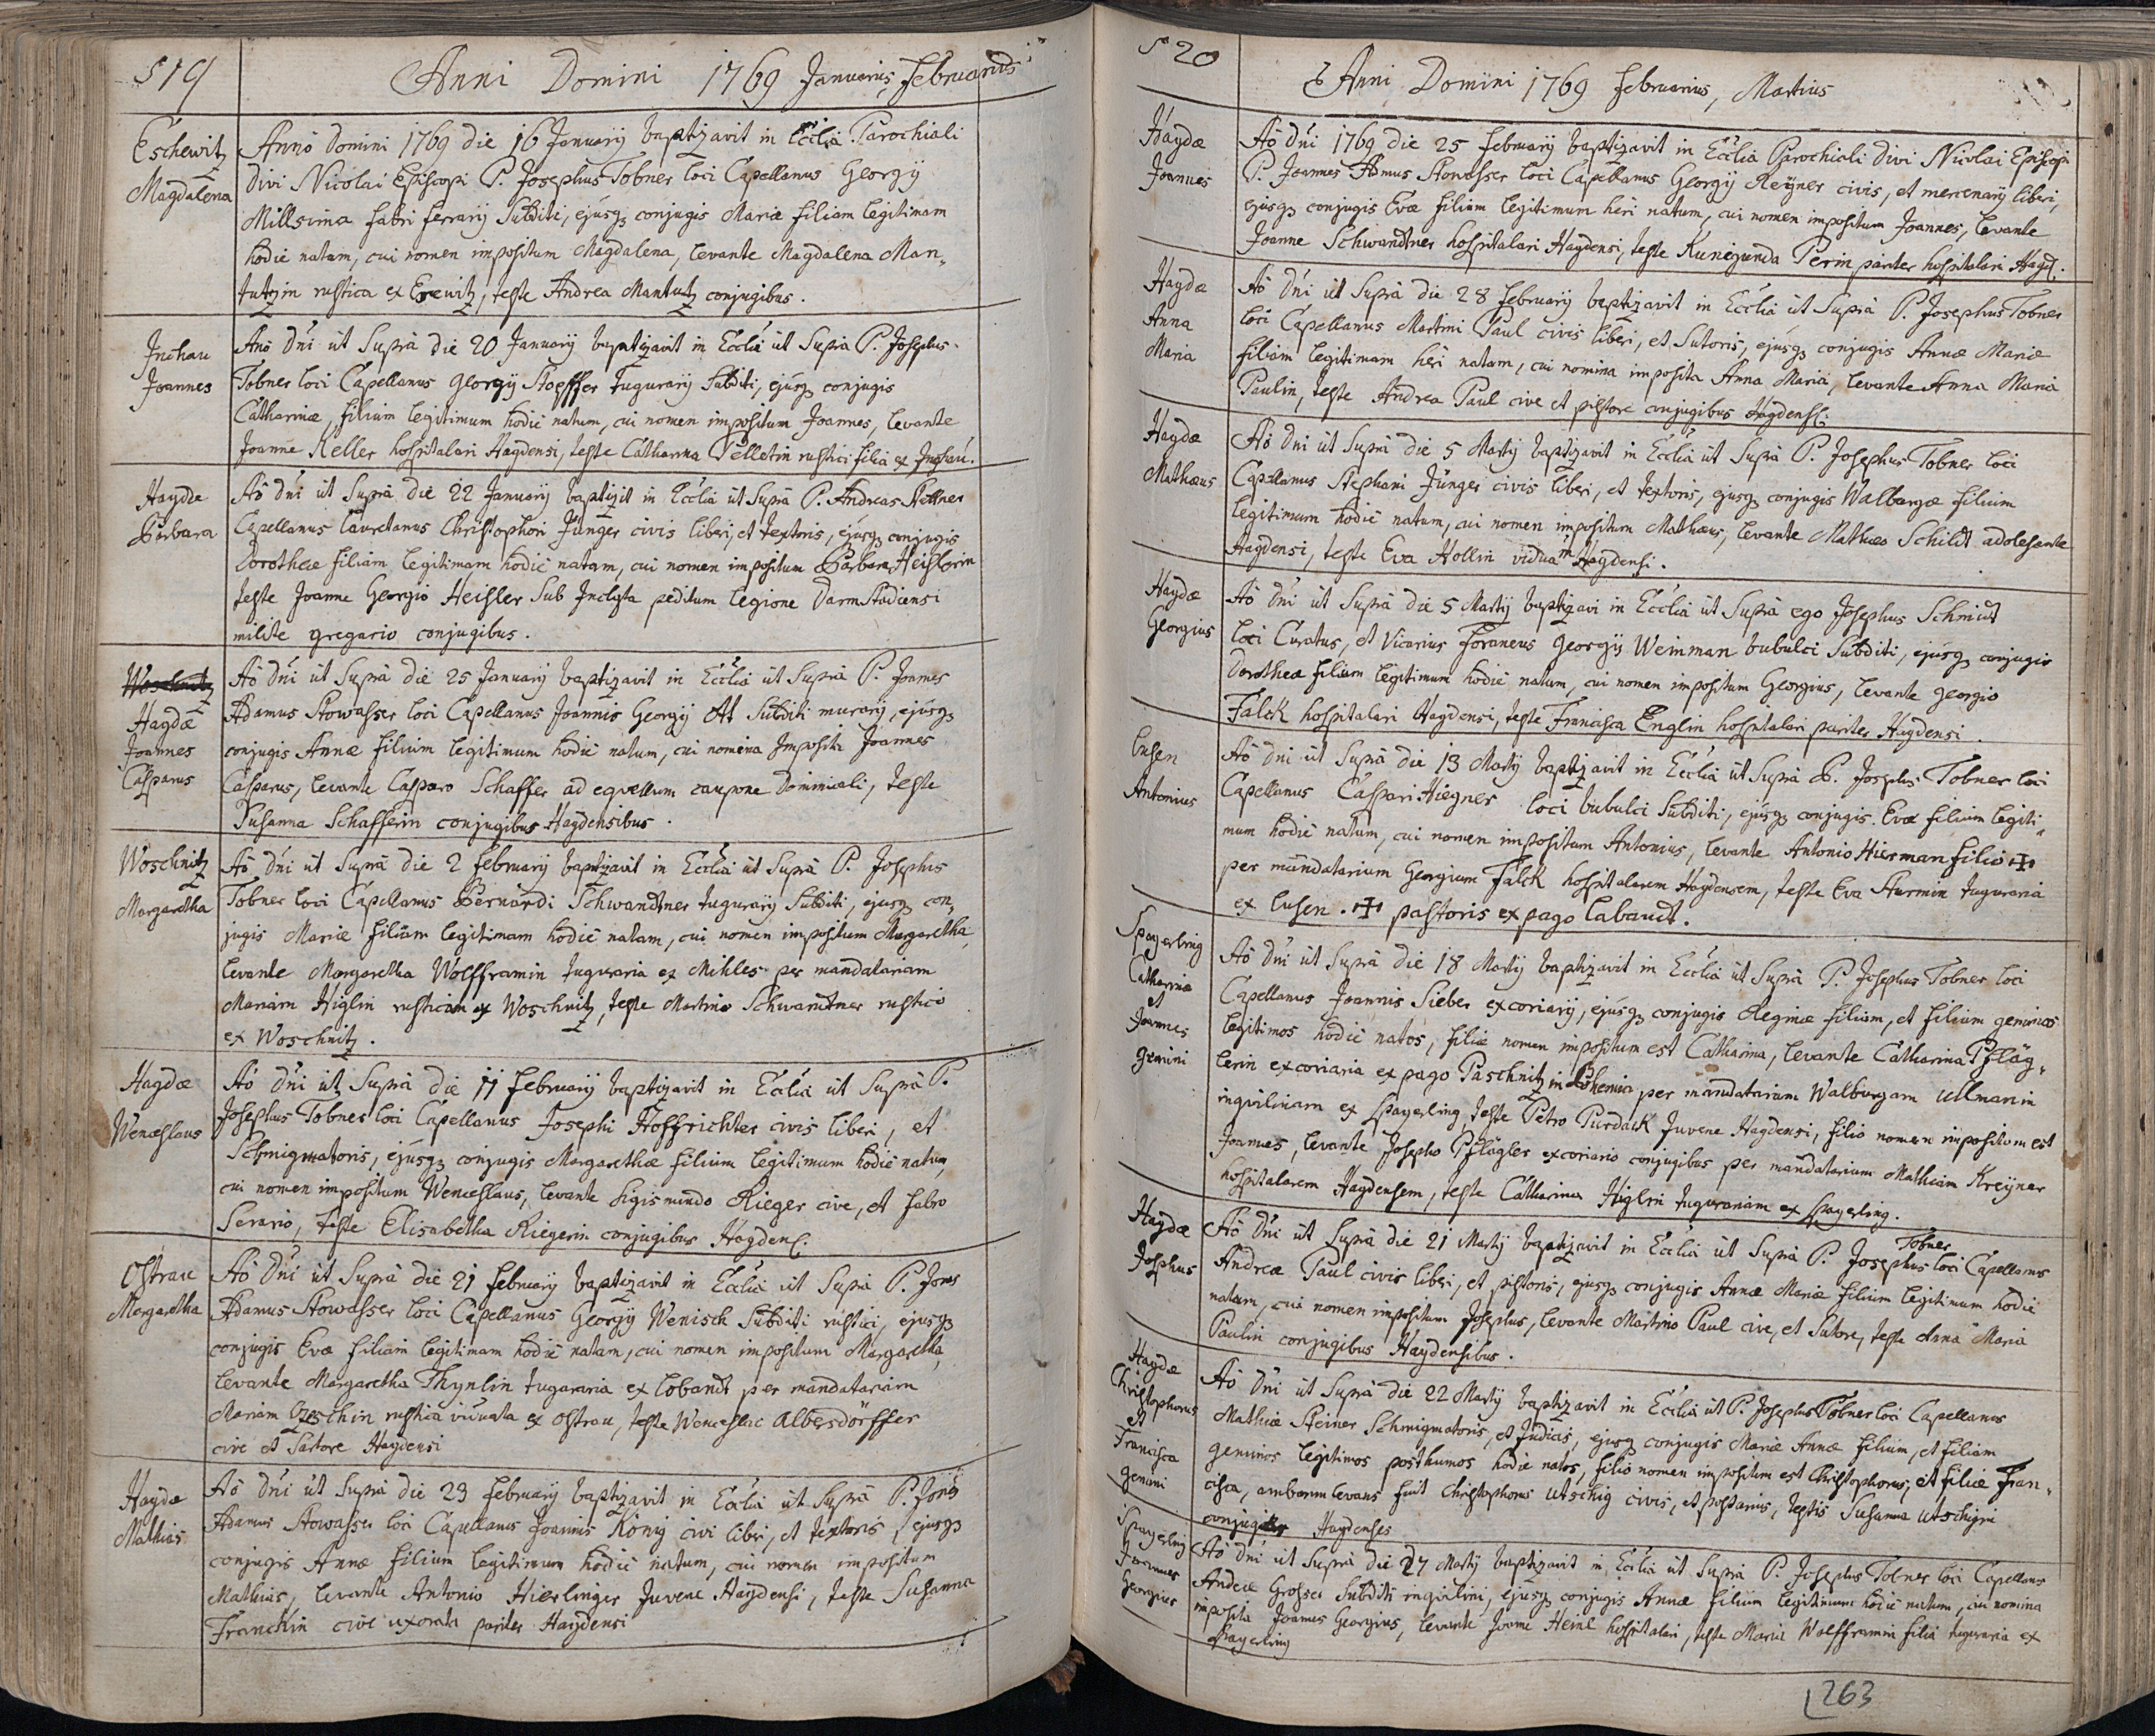 519
Anni Domini 1769 Januarius, Februarius
Eschewitz
Magdalena
Annò Domini 1769 die 16 Januarÿ baptizavit in Ecclia Parochiali
Divi Nicolai Episcopi P. Josephus Tobner loci Capellanus Georgÿ
Millsima fabri ferrarÿ Subditi, ejusq conjugis Mariæ filiam legitimam
hodiè natam, cui nomen impositum Magdalena, levante Magdalena Man„
tutzin rustica ex Esewitz, teste Andrea Mantutz conjugibus.
Inchau
Joannes
Anò Dni ut Suprà die 20 Januarÿ baptizavit in Ecclià ut Suprà P. Josephus
Tobner loci Capellanus Georgÿ Stopffer Tugurarÿ Subditi, ejusq conjugis
Catharinæ, filium legitimum hodiè natum, cui nomen impositum Joannes, levante
Joanne Keller hospitalari Haydensi, teste Catharina Pelletin rustici filia ex Inchau.
Haydæ
Barbara
Aò Dni ut Suprà die 22 Januarÿ baptizit in Ecclia ut Suprà P. Andreas Stettner
Capellanus lauretanus Christophori Jünger civis liberi, et textoris, ejusq conjugis
Dorotheæ filiam legitimam hodiè natam, cui nomen impositum Barbara Heislerin
teste Joanne Georgio Heisler Sub Inclyta peditum legione Darmstadiensi
milite gregario conjugibus.
Woschnitz
Haydæ
Joannes
Casparus
Aò Dni ut Suprà die 25 Januarÿ baptizavit in Ecclia ut Suprà P. Joannes
Adamus Stowasser loci Capellanus Joannis Georgÿ Ott Subditi murarÿ, ejusq
conjugis Annæ filium legitimum hodiè natum, cui nomina Imposita Joannes
Casparus, levante Casparo Schaffer ad equellum caupone Dominiali, teste
Susanna Schafferin conjugibus Haydensibus.
Woschnitz
Margaretha
Aò Dni ut Suprà die 2 February baptizavit in Ecclia ut Suprà P. Josephus
Tobner loci Capellanus Bernardi Schwandtner tugurarÿ Subditi, ejusq con„
jugis Mariæ filiam legitimam hodiè natam, cui nomen impositum Margaretha,
levante Margaretha Wolfframin tuguraria ex Mihles per mandatariam
Mariam Higlin rusticam ex Woschnitz, teste Martino Schwandtner rustico
ex Woschnitz.
Haydæ
Wenceslaus
Aò Dni ut Suprà die 11 Februarÿ baptizavit in Ecclia ut Suprà P.
Josephus Tobner loci Capellanus Josephi Hoffrichter civis liberi, et
Schmigmatoris, ejusq conjugis Margarethæ filium legitimum hodiè natum,
cui nomen impositum Wenceslaus, levante Sigismundo Rieger cive, et fabro
Serario, teste Elisabetha Riegerin conjugibus Haydens.
Ostrau
Margaretha
Aò Dni ut Suprà die 21 February baptizavit in Ecclia ut Supra P. Joes
Adamus Stowasser loci Capellanus Georgÿ Wenisch Subditi rustici, ejusq
conjugis Evæ filiam legitimam hodiè natam, cui nomen impositum Margaretha,
levante Margaretha Thynlin tuguraria ex Lobandt per mandatariam
Mariam rustica viduata ex Ostrau, teste Wenceslao Albersdörffer
cive et Sartore Haydensi
Haydæ
Mathias
Aò Dni ut Suprà die 23 February baptizavit in Ecclia ut Suprà P. Joes
Adamus Stowasser loci Capellanus Joannis König civi liberi, et textoris, ejusq
conjugis Annæ filium legitimum hodiè natum, cui nomen impositum
Mathias, levante Antonio Hierlinger Juvene Haydensi, teste Susanna
Franckin cive uxorata pariter Haydensi
520
Anni Domini 1769 Februarius, Martius
Haydæ
Joannes
Aò Dni 1769 die 25 February baptizavit in Ecclia Parochiali Divi Nicolai Episcopi
P. Joannes Admus Stowasser loci Capellanus Georgÿ Reyner civis, et mercenarÿ liberi,
ejusq conjugis Evæ filium legitimum heri natum, cui nomen impositum Joannes, levante
Joanne Schwandtner hospitalari Haydensi, teste Kunegunda Perin pariter hospitalari Hayd.
Haydæ
Anna
Maria
Aò Dni ut Suprà die 28 February baptizavit in Ecclia ut Suprà P. Josephus Tobner
loci Capellanus Martini Paul civis liberi, et Sutoris, ejusq conjugis Annæ Mariæ
filiam legitimam heri natam, cui nomina imposita Anna Maria, levante Anna Maria
Paulin, teste Andrea Paul cive et pistore conjugibus Haydens:
Haydæ
Mathæus
Aò Dni ut Suprà die 5 Martÿ baptizavit in Ecclia ut Suprà P. Josephus Tobner loci
Capellanus Stephani Jünger civis liberi, et textoris, ejusq conjugis Walburgæ filium
legitimum hodiè natum, cui nomen impositum Mathæus, levante Mathæo Schildt adolesente
Haydensi, teste Eva Hollin vidua Haydensi.
Haydæ
Georgius
Aò Dni ut Suprà die 5 Martÿ baptizavi in Ecclia ut Suprà ego Josephus Schmidt
loci Curatus, et Vicarius Foraneus Georgÿ Weinman bubulci Subditi, ejusq conjugis
Dorotheæ filium legitimum hodiè natum, cui nomen impositum Georgius, levante Georgio
Falck hospitalari Haydensi, teste Francisca Englin hospitalari pariter Haydensi.
Lusen
Antonius
Aò Dni ut Suprà die 13 Martÿ baptizavit in Ecclia ut Suprà P. Josephus Tobner loci
Capellanus Caspari Hiegner loci bubulci Subditi, ejusq conjugis Evæ filium legiti„
mum hodiè natum, cui nomen impositum Antonius, levante Antonio Hierman filio ✠
per mandatarium Georgium Falck hospitalarem Haydensem, teste Eva Sturmin tuguraria
ex Lusen. ✠ pastoris ex pago Labandt.
Spagerling
Catharina
et
Joannes
gemini
Aò Dni ut Suprà die 18 Martÿ baptizavit in Ecclia ut Suprà P. Josephus Tobner loci
Capellanus Joannis Sieber excoriarÿ, ejusq conjugis Reginæ filiam, et filium geminos
legitimos hodiè natos, filiæ nomen impositum est Catharina, levante Catharina Pfläg„
lerin excoriaria ex pago Paschnitz in Bohemia per mandatariam Walburgam Ullmanin
inquilinam ex Spagerling, teste Petro Purdack Juvene Haydensi, filio nomen impositum est
Joannes, levante Josepho Pflägler excoriario conjugibus per mandatarium Mathiam Kreÿner
hospitalarem Haydensem, teste Catharina Higlin tugurariam ex Spagerling.
Haydæ
Josephus
Aò Dni ut Suprà die 21 Martÿ baptizavit in Ecclia ut Suprà P. Josephus Tobner loci Capellanus
Andreæ Paul civis liberi, et pistoris, ejusq conjugis Annæ Mariæ filium legitimum hodiè
natum, cui nomen impositum Josephus, levante Martino Paul cive, et Sutore, teste Anna Maria
Paulin conjugibus Haydensibus.
Haydæ
Christophorus
et
Francisca
gemini
Aò Dni ut Suprà die 22 Martÿ baptizavit in Ecclia ut P. Josephus Tobner loci Capellanus
Mathiæ Steiner Schmigmatoris, et Judicis, ejusq conjugis Mariæ Annæ filium, et filiam
geminos legitimos posthumos hodiè natos, filio nomen impositum est Christophorus, et filiæ Fran„
cisca, amborum levans fuit Christophorus Utschig civis, et testis Susanna Utschigin
conjuges Haydenses
Spagerling
Joannes
Georgius
Aò Dni ut Suprà die 27 Martÿ baptizavit in Ecclia ut Suprà P. Josephus Tobner loci Capellanus
Andreæ Subditi inquilini, ejusq conjugis Annæ filium legitimum hodiè natum, cui nomina
imposita Joannes Georgius, levante Joanne Heinl hospitalari, teste Maria Wolfframin filia tuguraria ex
Spagerling
263